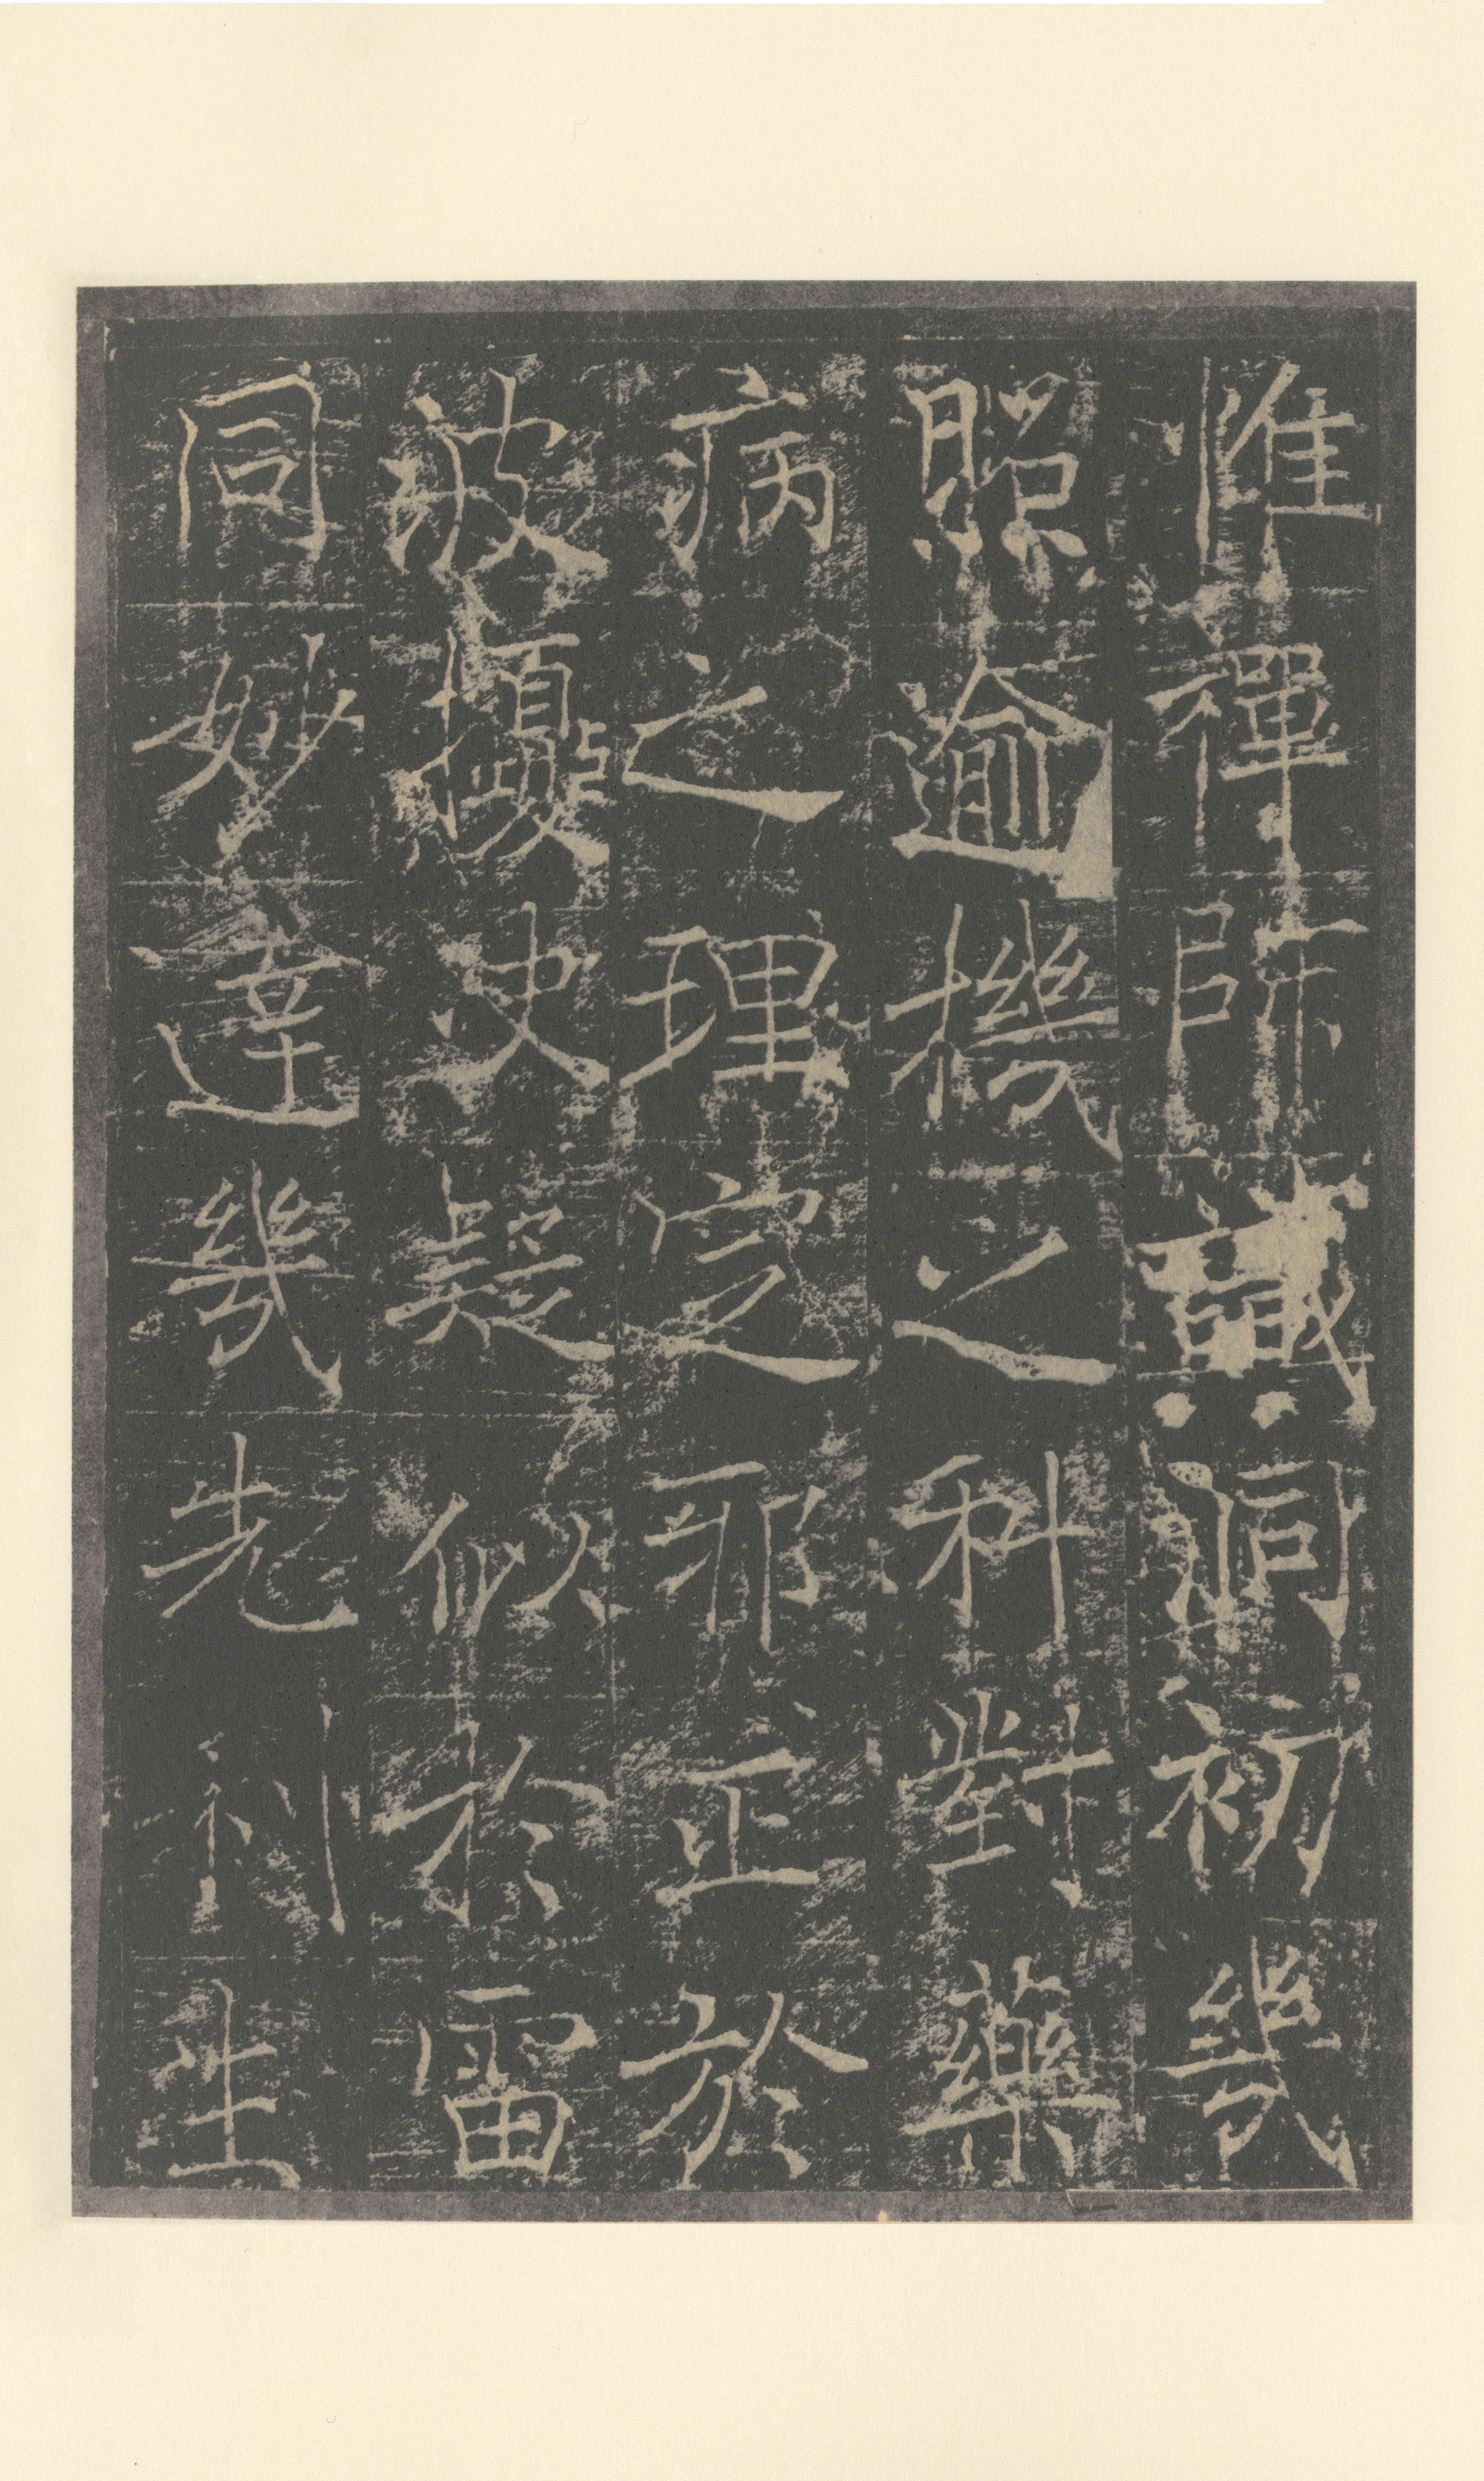 惟禪師識洞初幾
照逾機之科對藥
病之理定耶正於
波擾決疑似於雷
同妙達幾先利生